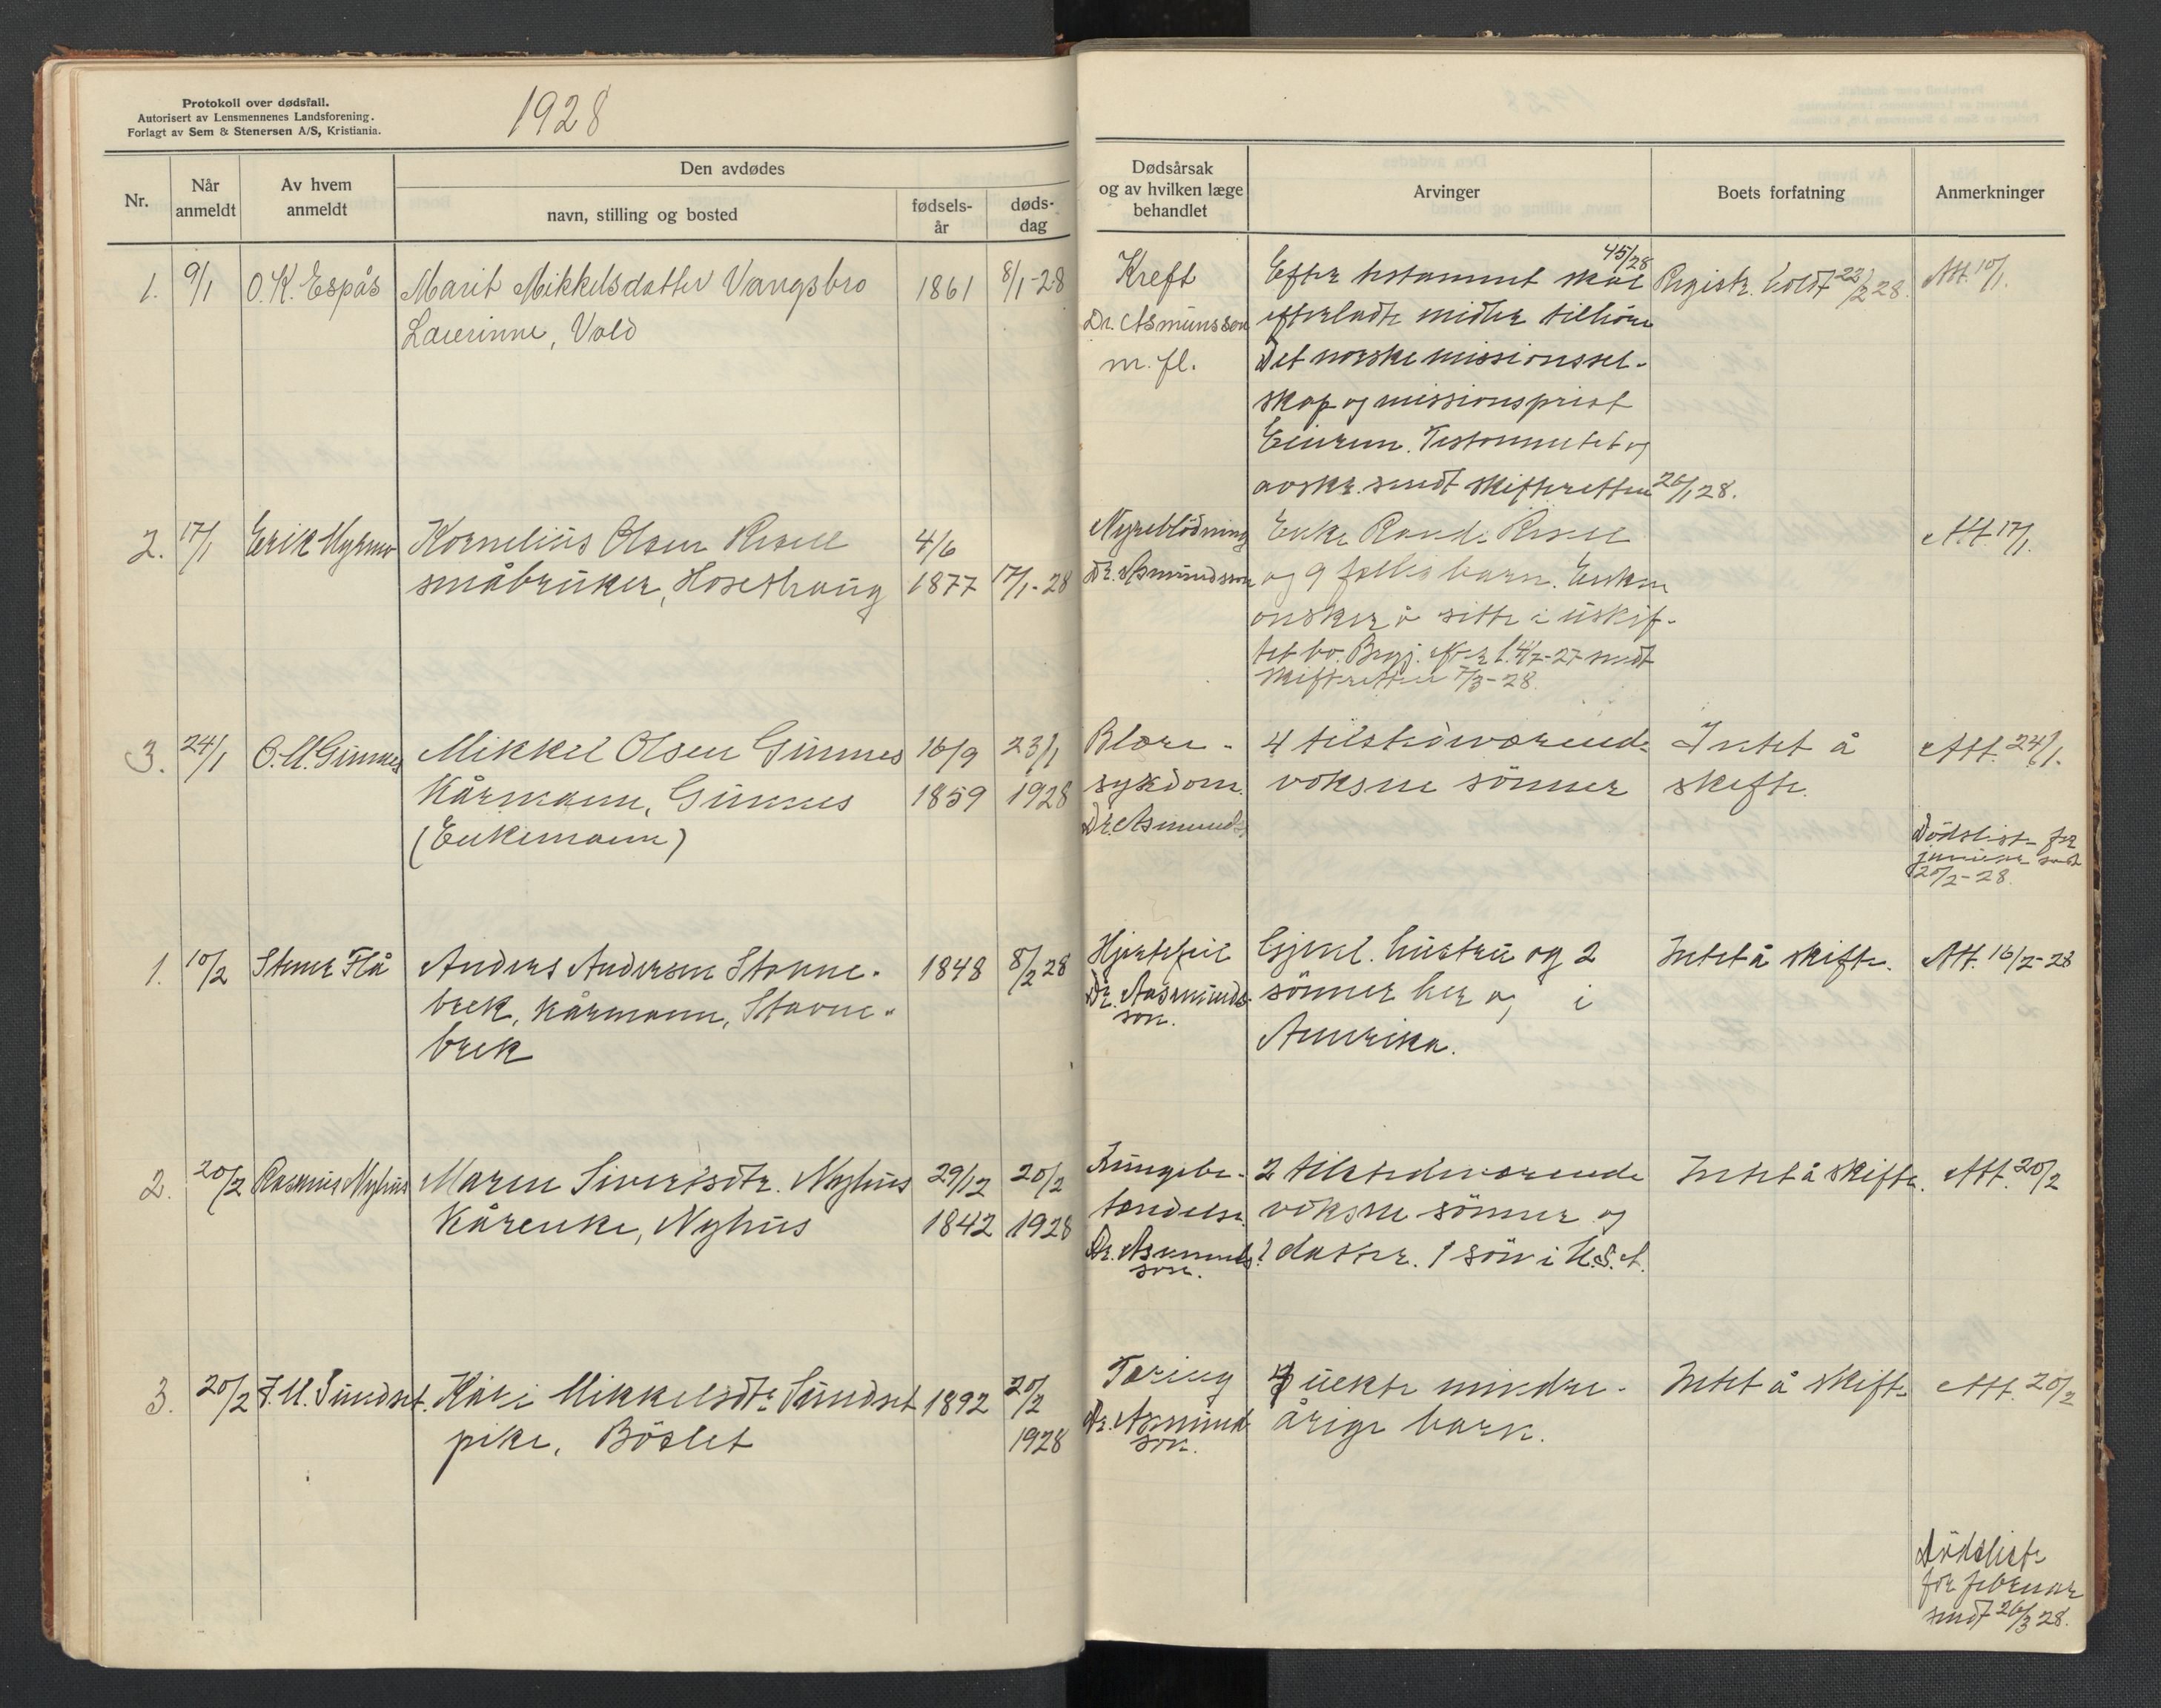 Protokoll over dødsfall.
Autorisert av Lensmennenes Landsforening.
Forlagt av Sem & Stenersen A/S, Kristiania.
1928
Nr.
Når anmeldt
Av hvem anmeldt
Den avdødes
navn, stilling og bosted
fødsels-år
døds-dag
Dødsårsak og av hvilken læge behandlet
Arvinger
Boets forfatning
Anmerkninger
1. 9/1 O. K. Espås
Marit Mikkelsdatter Vangsbro
Lærerinne, Vold
1861 8/1-28
Kreft
Dr. Asmunsson
m. fl.
45/28
Efter testament skal
efterladte midler tilhöre
Det norske missionssel-
skap og missionsprest
Einrem. Testamentet og
avskr. sendt skifteretten 26/1 28.
Registr. holdt 22/2 28.
Att. 10/1.
2. 17/1 Erik Myrmo
Kornelius Olsen Resell
småbruker, Hosethaug
4/6
1877 17/1-28
Nyreblödning
Dr. Asmundsson
Enke Randi Resell
og 9 felles barn. Enken
önsker å sitte i uskif-
tet bo. Begj. efter l. 4/7-27 sendt
skifteretten 7/3-28.
Att. 17/1.
3. 24/1 O. M. Gunnes
Mikkel Olsen Gunnes
Kårmann, Gunnes
(Enkemann)
16/9
1859
23/1
1928
Blære-
sykdom.
Dr. Asmunds.
4 tilstedværende
voksne sönner
Intet å
skifte.
Att. 24/1.
Dödsliste for
januar sendt
20/2-28.
1. 10/2 Stener Flå
Anders Andersen Stavne-
brek, kårmann, Stavne-
brek
1848 8/2 28
Hjertefeil
Dr. Aasmunds-
son.
Gjenl. hustru og 2
sönner her og i
Amerika.
Intet å skifte.
Att. 16/2-28
2. 20/2 Rasmus Nyhus
Maren Sivertsdtr. Nyhus
Kårenke, Nyhus
29/12
1842
20/2
1928
Lungebe-
tændelse.
Dr. Asmunds-
son.
2 tilstedeværende
voksne sönner og
1 datter. 1 sön i U.S.A.
Intet å skifte.
Att. 20/2
3. 20/2 J. M. Sundset.
Kari Mikkelsdtr. Sundset
pike, Böslet
1892
20/2
1928
Tæring
Dr. Asmund-
son.
4 uekte mindre-
årige barn.
Intet å skifte
Att. 20/2
Dödsliste
for februar
sendt 26/3 28.